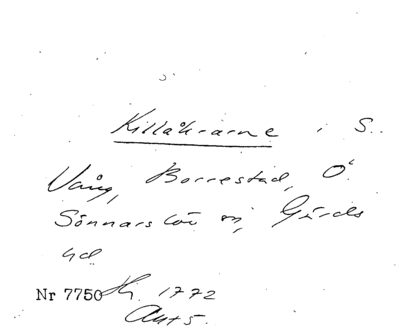 Killåkrarne i S.
Vång, Borrestad, Ö.
Sönnarslöv sn, Gärds
hd
Nr 7750 Hr. 1772
Akt 5.